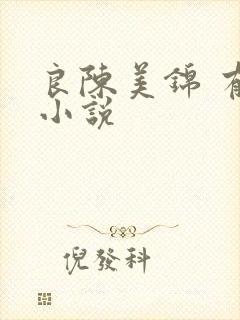 良陳美錦
小說
倪發科